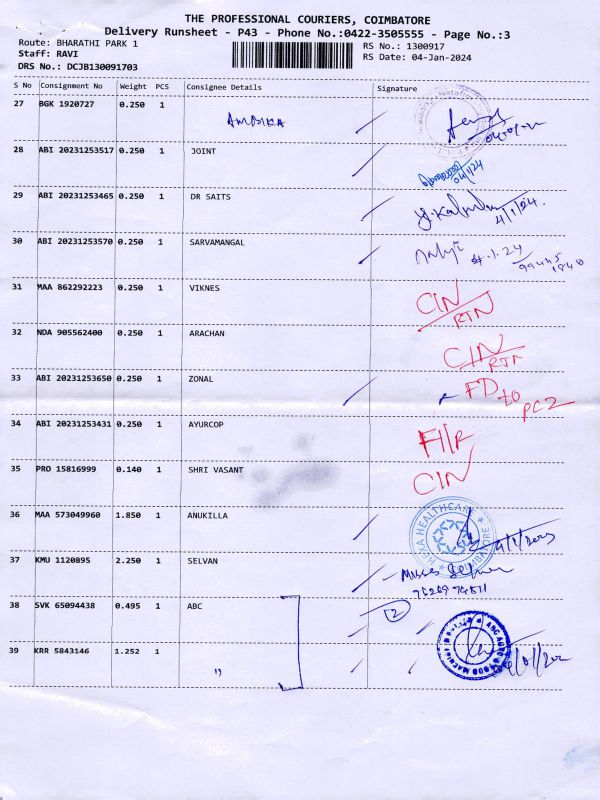 THE PROFESSIONAL COURIERS, COIMBATORE
Delivery Runsheet - P43 - Phone No.:0422-3505555 - Page No.:3
Route: BHARATHI PARK 1 RS No.: 1300917
Staff: RAVI RS Date: 04-Jan-2024
DRS No.: DCJB130091703
S No Consignment No Weight PCS Consignee Details Signature
27 BGK 1920727 0.250 1 AMBIKA
28 ABI 20231253517 0.250 1 JOINT
04/1/24
29 ABI 20231253465 0.250 1 DR SAITS
4/1/24.
30 ABI 20231253570 0.250 1 SARVAMANGAL
4.1.24
31 MAA 862292223 0.250 1 VIKNES CIN
RTN
32 NDA 905562400 0.250 1 ARACHAN CIN
RTN
33 ABI 20231253650 0.250 1 ZONAL FD to
PC2
34 ABI 20231253431 0.250 1 AYURCOP
35 PRO 15816999 0.140 1 SHRI VASANT CIN
36 MAA 573049960 1.850 1 ANUKILLA HEXA HEALTHCARE
COIMBATORE
37 KMU 1120895 2.250 1 SELVAN
38 SVK 65094438 0.495 1 ABC 2
39 KRR 5843146 1.252 1 "